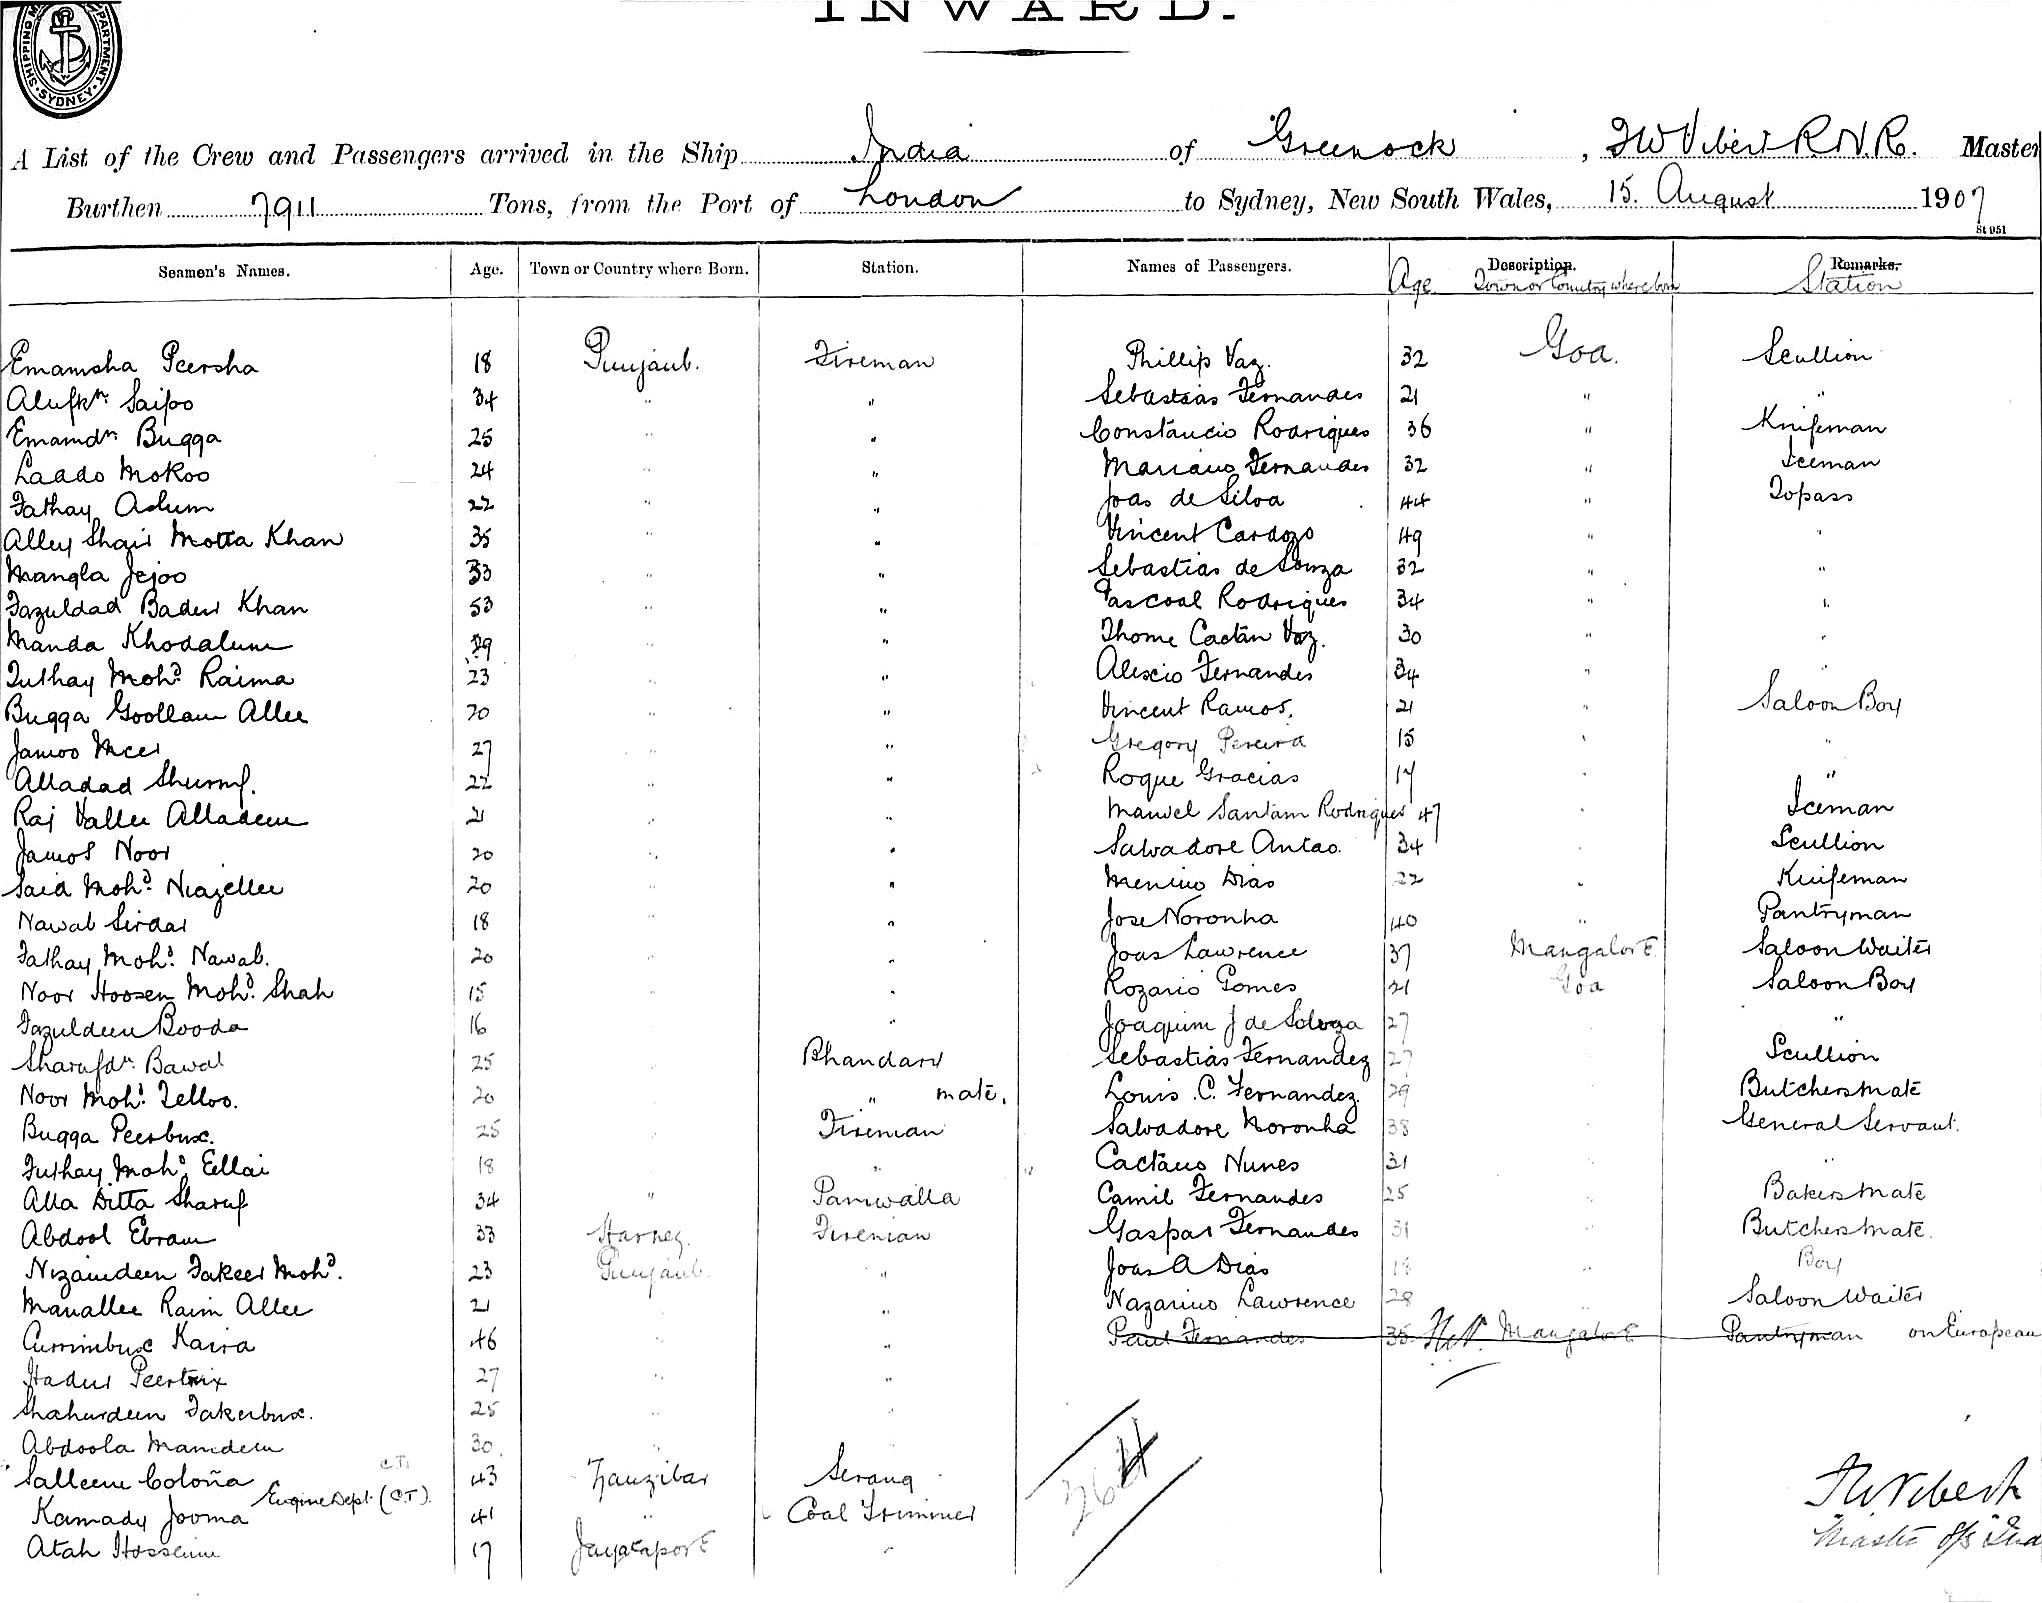 INWARD.
SHIPPING DEPARTMENT SYDNEY
A List of the Crew and Passengers arrived in the Ship India of Greenock, Vibert R.N.R. Master
Burthen 7911 Tons, from the Port of London to Sydney, New South Wales, 15. August 1907
St 951
Seamen's Names. Age. Town or Country where Born. Station. Names of Passengers. Age Description. Town or Country where born Remarks. Station
Emamsha Peersha 18 Punjaub. Fireman Phillip Vaz. 32 Goa. Scullion
Saifoo 34 " " Sebastias Fernandes 21 " "
Emamdn Bugga 25 " " Constancio Rodrigues 36 " Knifeman
Laado Mokoo 24 " " Mariano Fernandes 32 " Iceman
Fathay Adum 22 " " Joas de Silva 44 " Topass
Alley Shair Motta Khan 35 " " Vincent Cardozo 49 " "
Mangla Jejoo 33 " " Sebastias de Souza 32 " "
Fazuldad Badur Khan 53 " " Pascoal Rodrigues 34 " "
Manda Khodalum " " Thome Caetan Vaz. 30 " "
Futhay Mohd. Raima 23 " " Alexcio Fernandes 34 " "
Bugga Goollam Allee 20 " " Vincent Ramos. 21 " Saloon Boy
Jamoo Meer 27 " " Gregory Pereira 15 " "
Alladad Shurruf. 22 " " Roque Gracias 17 " "
Raj Vallee Alladeen 21 " " Manoel Santam Rodrigues 47 " Iceman
Noor 20 " " Salvadore Antao. 34 " Scullion
Said Mohd. Niazellee 20 " " Menino Dias 22 " Knifeman
Nawab Sirdar 18 " " Jose Noronha 40 " Pantryman
Fathay Mohd. Nawab. 20 " " Joas Lawrence 37 Mangalore Saloon Waiter
Noor Hoosen Mohd. Shah 15 " Rozario Gomes 21 Goa Saloon Boy
Fazuldeen Booda 16 " Joaquim J de 27 "
Sharufdn. Bawal 25 Bhandary Sebastias Fernandez 27 Scullion
Noor Mohd. 20 " mate. Louis C. Fernandez. 29 Butchers Mate
Bugga Peerbux. 25 Fireman Salvadore Noronha 38 General Servant.
Futhay Mohd. Ellai 18 " Caetano Nunes 31 "
Alla Ditta Sharuf 34 " Paniwalla Camil Fernandes 25 Bakers Mate
Abdool Ebram 33 Fireman Gaspar Fernandes 31 Butchers Mate.
Nizamdeen Fakeer Mohd. 23 Punjaub. " Joas A Dias 18 " Boy
Manallee Raim Allee 21 " " Nazarino Lawrence 28 Saloon Waiter
Currimbux Kaira 46 " " Paul Fernandes 35 Mangalore Pantryman on European
Hadur 27 " "
Shahurdeen Fakerbux. 25 " "
Abdoola Mamdeen 30 "
Salleem 43 Zanzibar Serang
Kamady Jooma Engine Dept. (C.T.) 41 " Coal Trimmer
Atah Hosseim 17 "
Vibert
Master